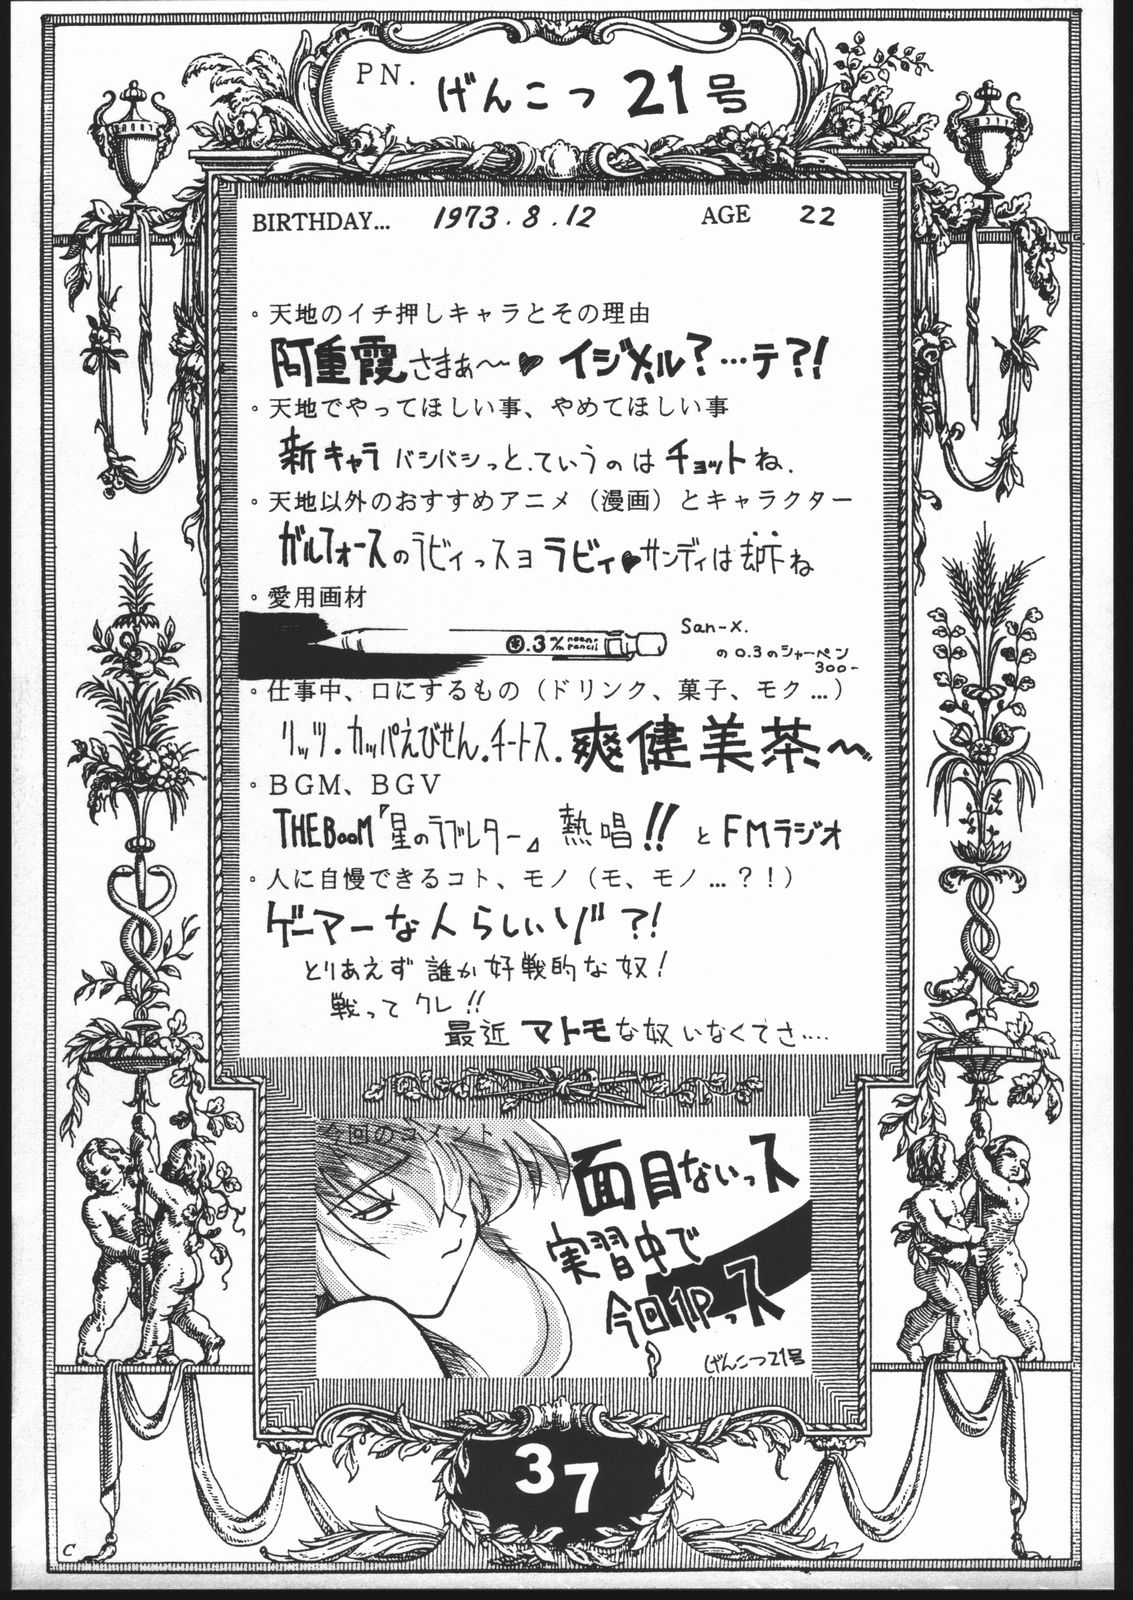 PN. げんこつ 21号
BIRTHDAY... 1973.8.12 AGE 22
。天地のイチ押しキャラとその理由
阿重霞さまぁ〜♥ イジメル?…テ?!
。天地でやってほしい事、やめてほしい事
新キャラバシバシっと.ていうのはチョットね.
。天地以外のおすすめアニメ（漫画）とキャラクター
ガルフォースのラビィっスョラビィ♥サンディは却下ね
。愛用画材
0.3 m/m neeni pencil
San-x.
の0.3のシャーペン
300-
。仕事中、口にするもの（ドリンク、菓子、モク…）
リッツ.カッパえびせん.チートス.爽健美茶〜
。BGM、BGV
THE BooM『星のラブレター』熱唱!!とFMラジオ
。人に自慢できるコト、モノ（モ、モノ…？！）
ゲーマーな人らしいゾ?!
とりあえず誰か好戦的な奴!
戦ってクレ!!
最近マトモな奴いなくてさ....
今回のコメント
面目ないっス
実習中で
今回1Pっス
げんこつ21号
37
C